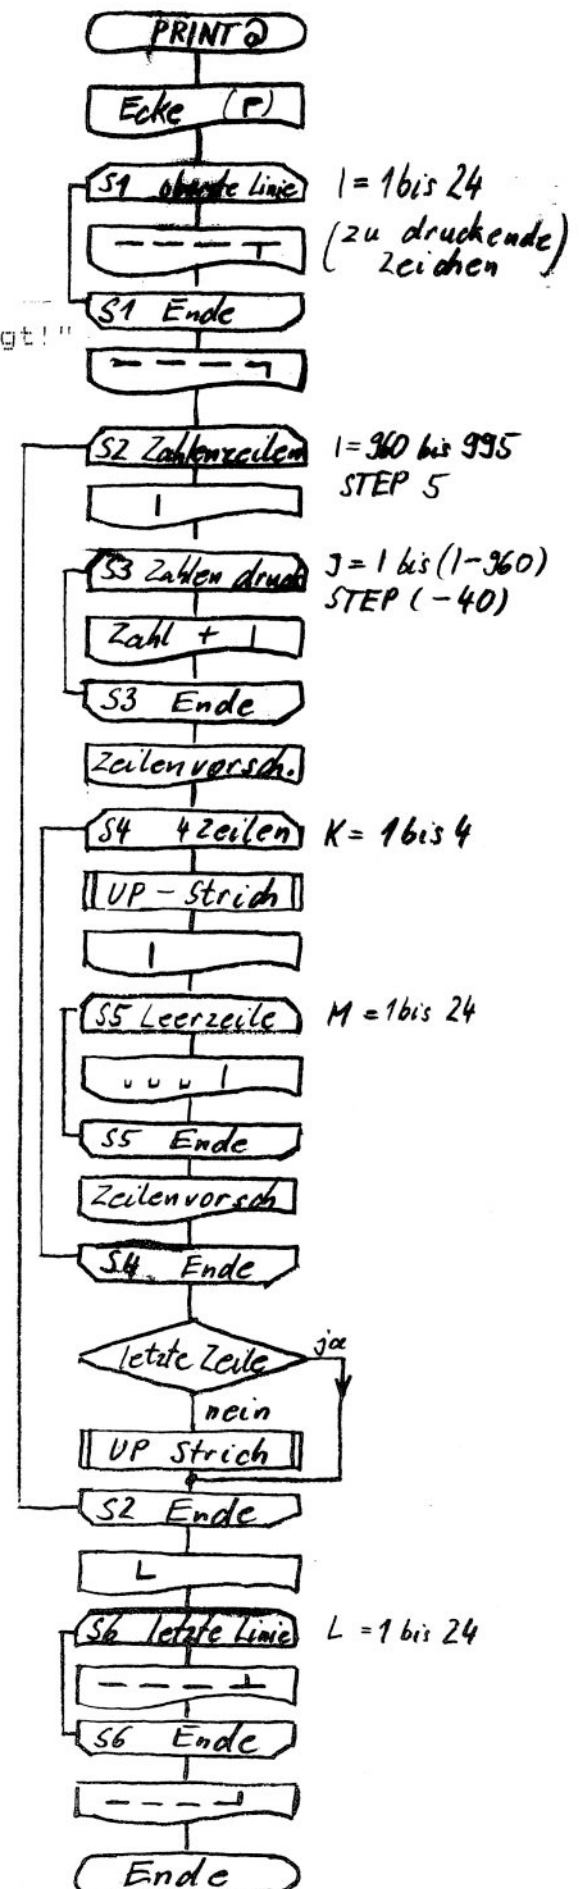 PRINT @
Ecke (┌)
S1 oberste Linie
I = 1 bis 24
(zu druckende
Zeichen)
— — — — ┬
S1 Ende
gt!"
— — — — ┐
S2 Zahlenzeilen
I = 960 bis 995
STEP 5
|
S3 Zahlen druck
J = I bis (I-960)
STEP (-40)
Zahl + |
S3 Ende
Zeilenvorsch.
S4 4 Zeilen
K = 1 bis 4
UP - Strich
|
S5 Leerzeile
M = 1 bis 24
␣ ␣ ␣ |
S5 Ende
Zeilenvorsch
S4 Ende
letzte Zeile
ja
nein
UP Strich
S2 Ende
└
S6 letzte Linie
L = 1 bis 24
— — — ┴
S6 Ende
— — — — ┘
Ende